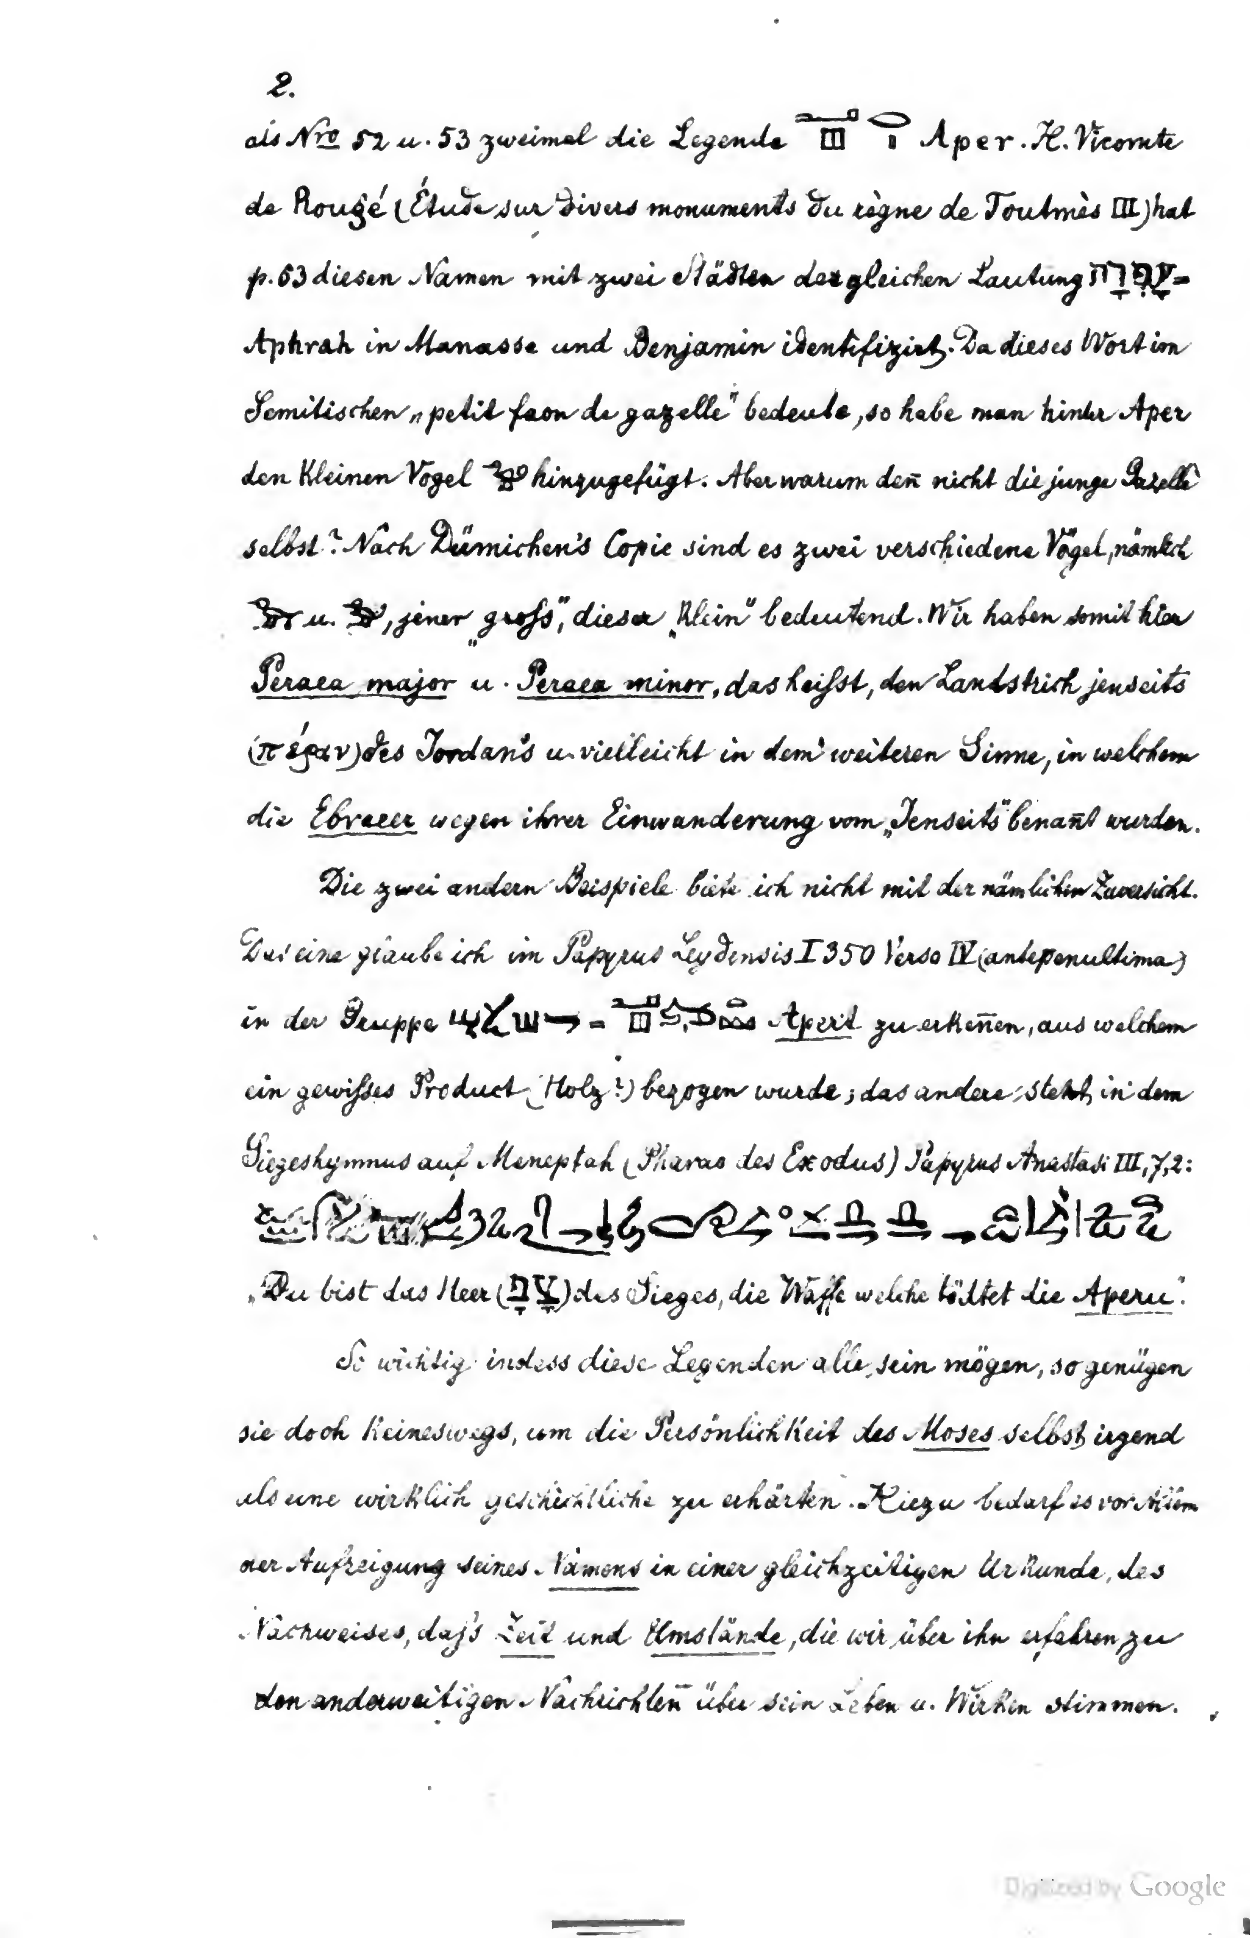 2.
als Nro 52 u. 53 zweimal die Legende Aper. H. Vicomte
de Rougé (Étude sur divers monuments du règne de Toutmès III) hat
p. 53 diesen Namen mit zwei Städten der gleichen Lautung עָפְרָה=
Aphrah in Manasse und Benjamin identifizirt. Da dieses Wort im
Semitischen „petit faon de gazelle" bedeute, so habe man hinter Aper
den Kleinen Vogel hinzugefügt. Aber warum den̄ nicht die junge Gazelle
selbst? Nach Dümichen's Copie sind es zwei verschiedene Vögel, nämlich
u. , jener „groſs", dieser „Klein" bedeutend. Wir haben somit hier
Peraea major u. Peraea minor, das heiſst, den Landstrich jenseits
(πέραν) des Jordan's u. vielleicht in dem weiteren Sinne, in welchem
die Ebraeer wegen ihrer Einwanderung vom „Jenseits" benan̄t wurden.
Die zwei andern Beispiele biete ich nicht mit der nämlichen Zuversicht.
Das eine glaube ich im Papyrus Leydensis I 350 Verso IV (antepenultima)
in der Gruppe = Aperit zu erken̄en, aus welchem
ein gewiſses Product (Holz?) bezogen wurde; das andere steht in dem
Siegeshymnus auf Meneptah (Pharao des Exodus) Papyrus Anastasi III, 7, 2:
„Du bist das Heer (צָבָ) des Sieges, die Waffe welche tödtet die Aperu".
So wichtig indess diese Legenden alle sein mögen, so genügen
sie doch Keineswegs, um die Persönlichkeit des Moses selbst irgend
als eine wirklich geschichtliche zu erhärten. Hiezu bedarf es vor Allem
der Aufzeigung seines Namens in einer gleichzeitigen Urkunde, des
Nachweises, daſs Zeit und Umstände, die wir über ihn erfahren, zu
den anderweitigen Nachrichten über sein Leben u. Wirken stimmen.
Digitized by Google